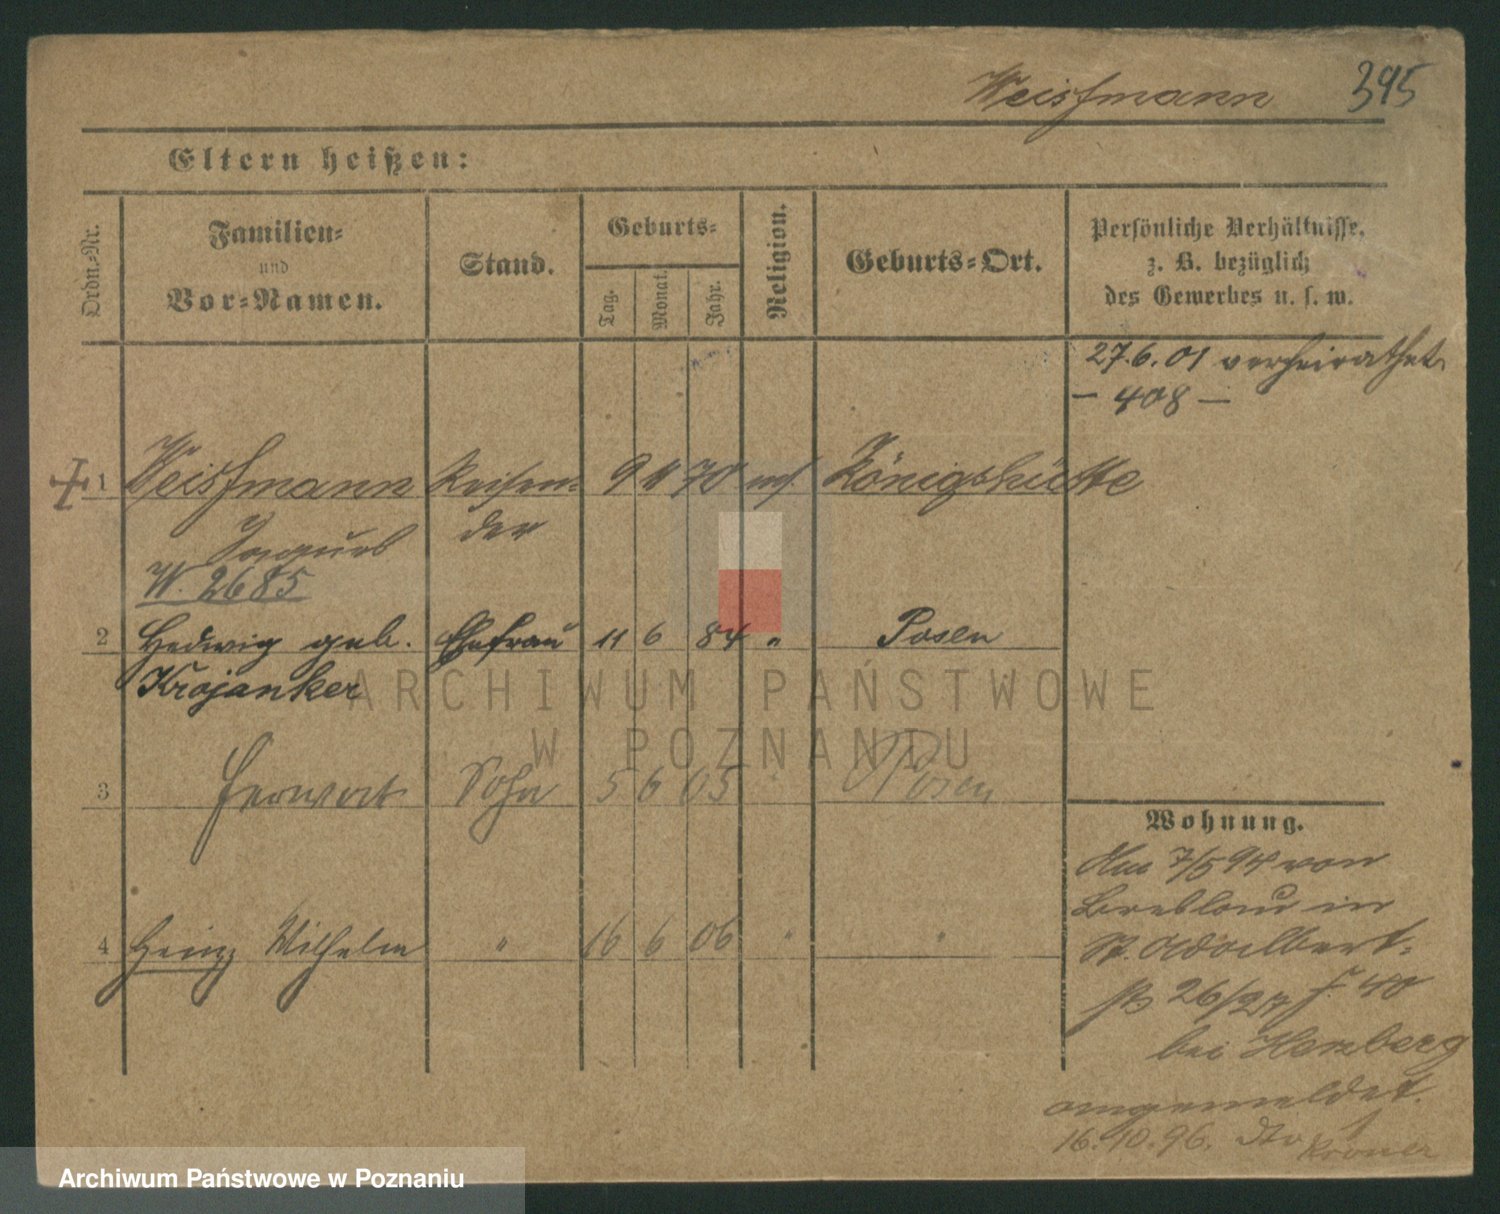 Weissmann 395
Eltern heißen:
Ordn.-Nr.
Familien-
und
Vor-Namen.
Stand.
Geburts-
Tag.
Monat.
Jahr.
Religion.
Geburts-Ort.
Persönliche Verhältnisse,
z. B. bezüglich
des Gewerbes u. s. w.
27.6.01 verheirathet
– 408 –
1 Weissmann Reisen- 9 70 Königshütte
der
W. 2685
2 Hedwig geb. Ehefrau 11 6 84 " Posen
Krojanker
ARCHIWUM PAŃSTWOWE
W POZNANIU
3 Sohn 5 6 05 Posen
4 Heinz Wilhelm " 16 6 06 " "
Wohnung.
7/5 94 von
Breslau in
St. Adalbert-
26/27 f. 40
bei Herzberg
angemeldet.
16.10.96.
Archiwum Państwowe w Poznaniu